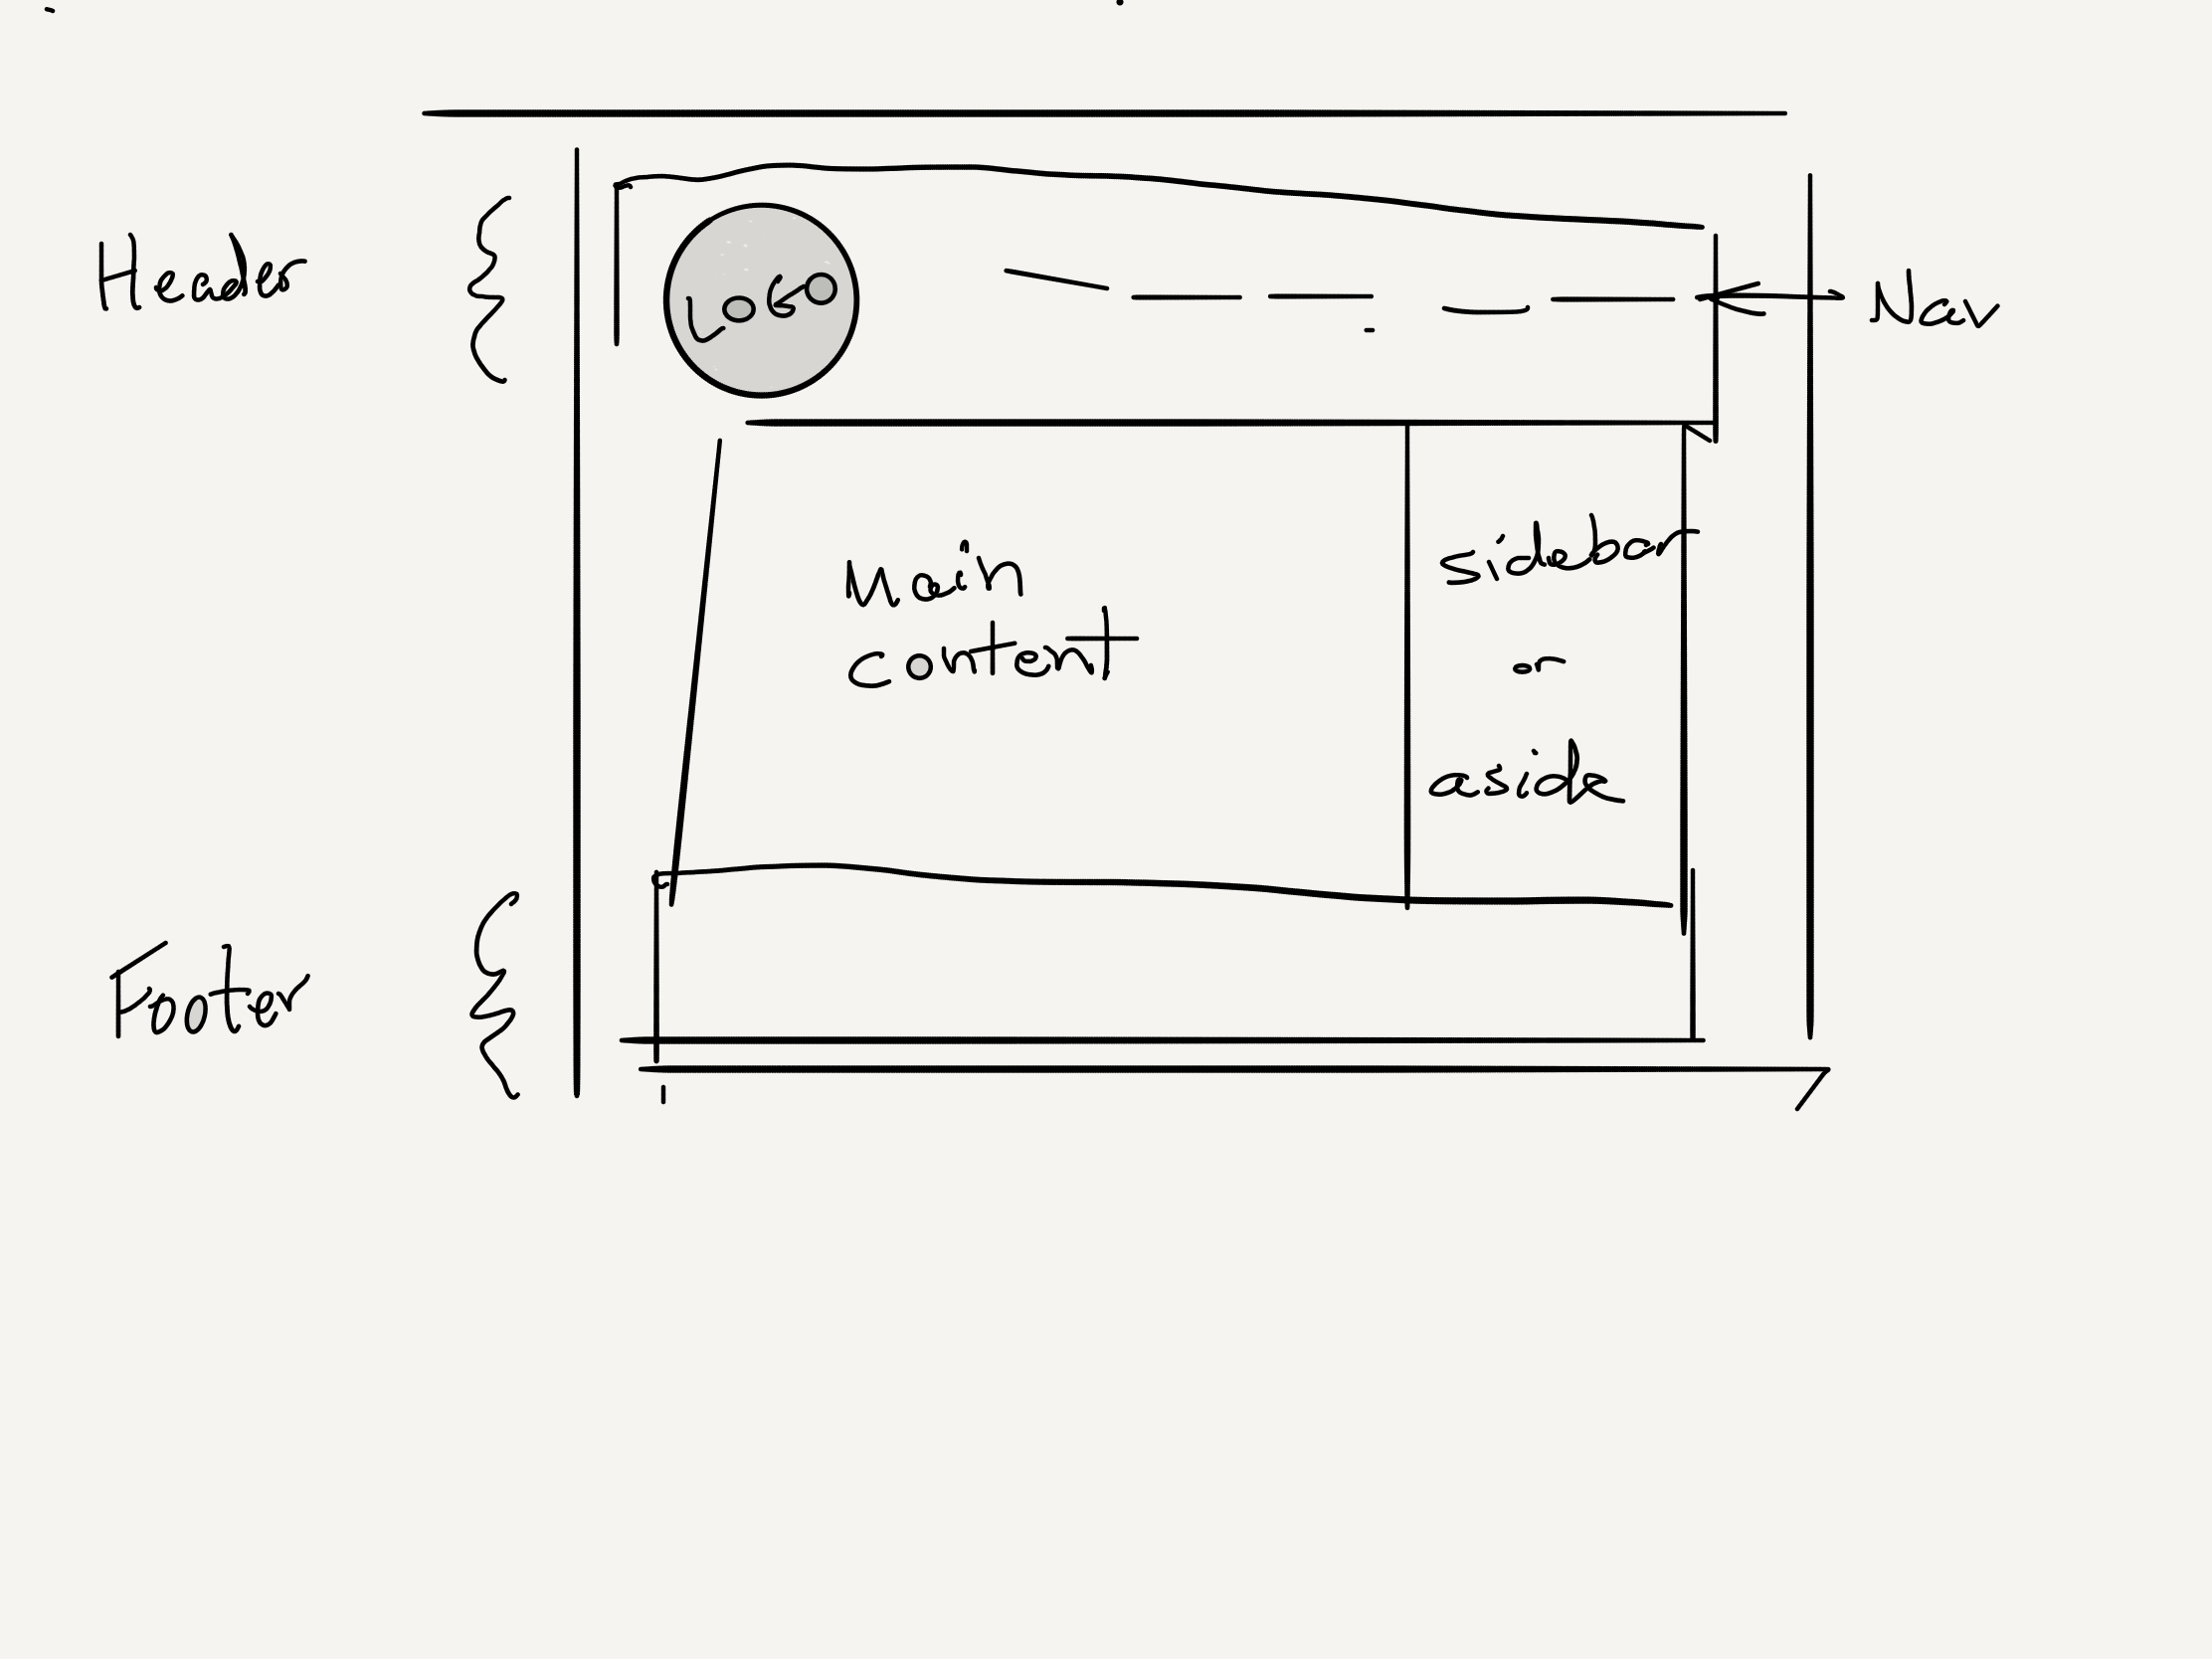 Header
LOGO
Nav
Main
content
sidebar
or
aside
Footer